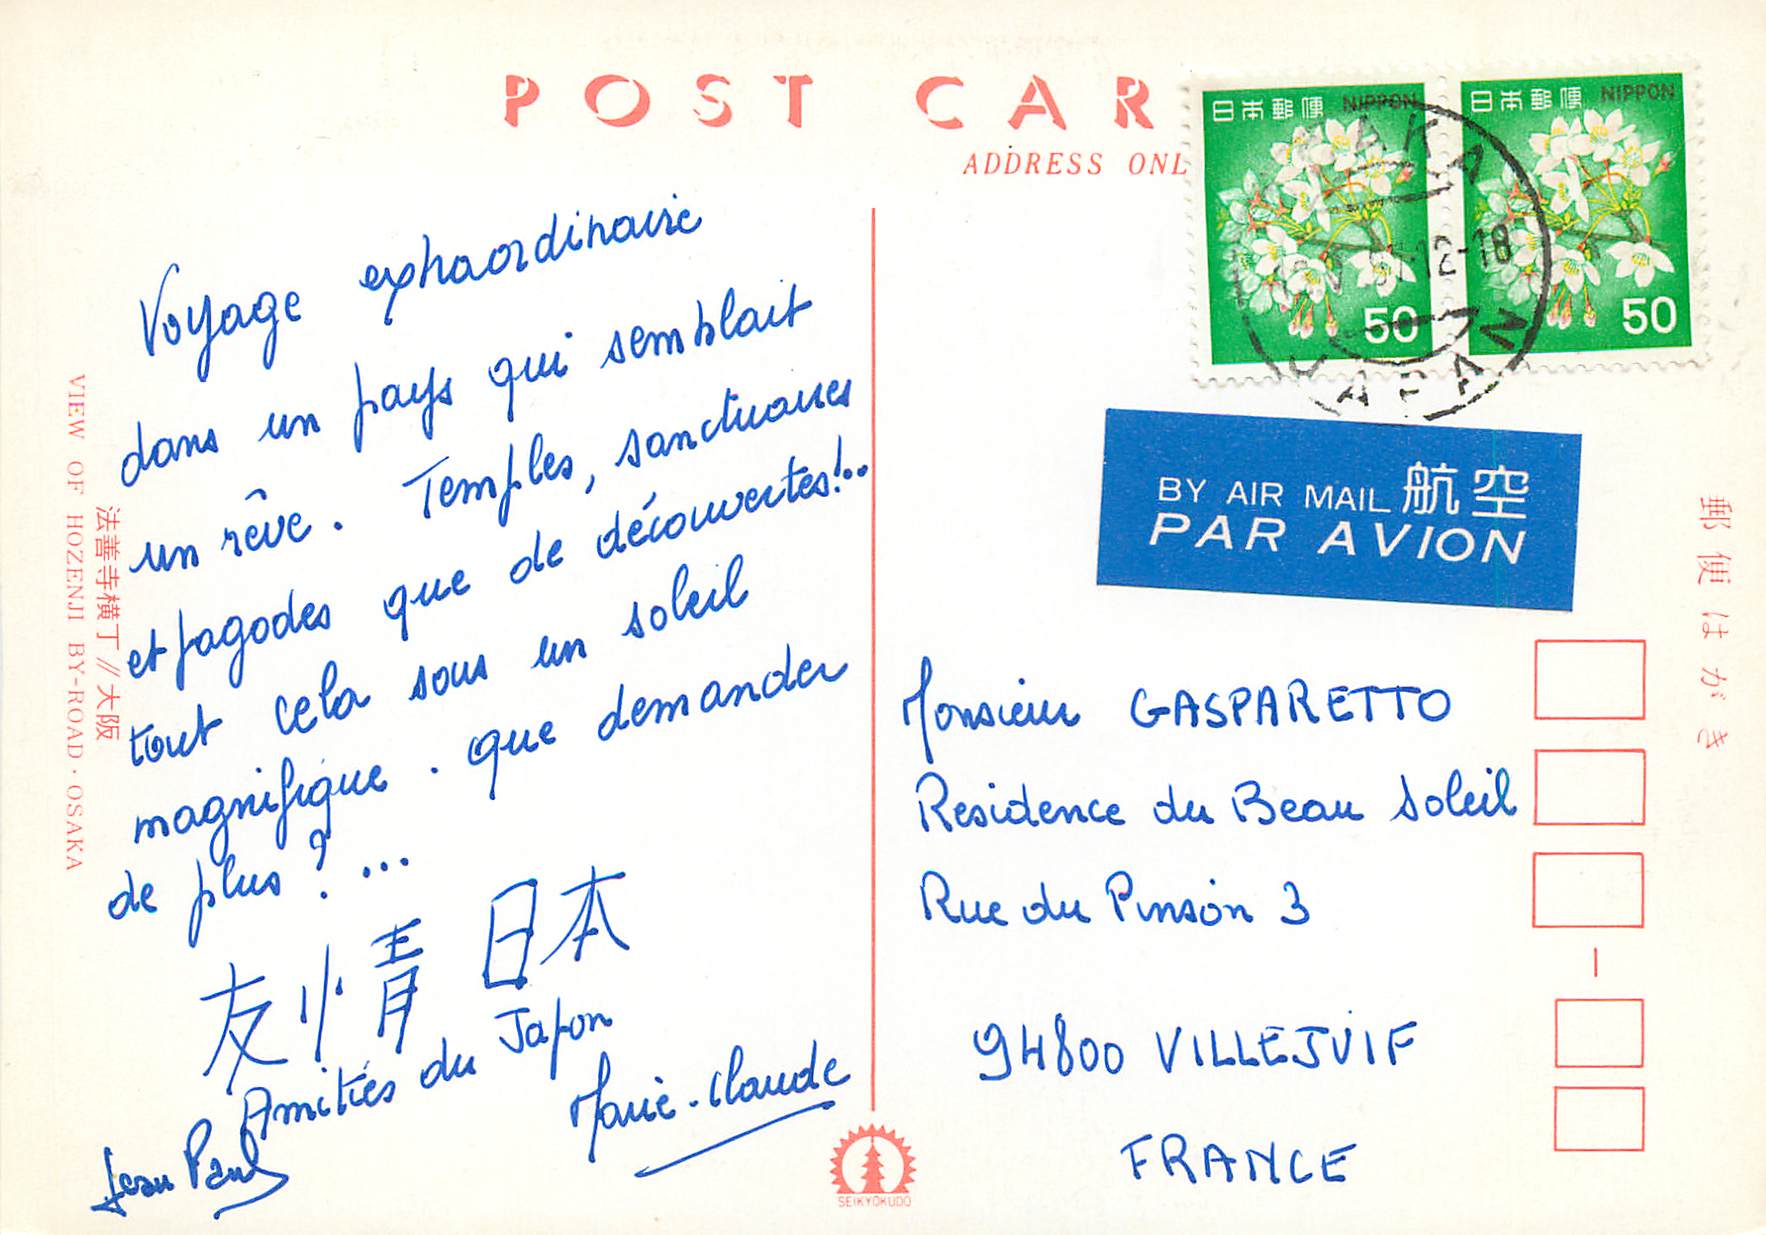 POST CAR
ADDRESS ONL
日本郵便 NIPPON
50
日本郵便 NIPPON
50
AKA
12-18
JAPAN
BY AIR MAIL 航空
PAR AVION
郵便はがき
VIEW OF HOZENJI BY-ROAD・OSAKA
法善寺横丁//大阪
Voyage extraordinaire
dans un pays qui semblait
un rêve. Temples, sanctuaires
et pagodes que de découvertes!..
tout cela sous un soleil
magnifique. que demander
de plus? ...
友情 日本
Amitiés du Japon
Marie-Claude
Jean Paul
Monsieur GASPARETTO
Residence du Beau Soleil
Rue du Pinson 3
94800 VILLEJUIF
FRANCE
SEIKYOKUDO